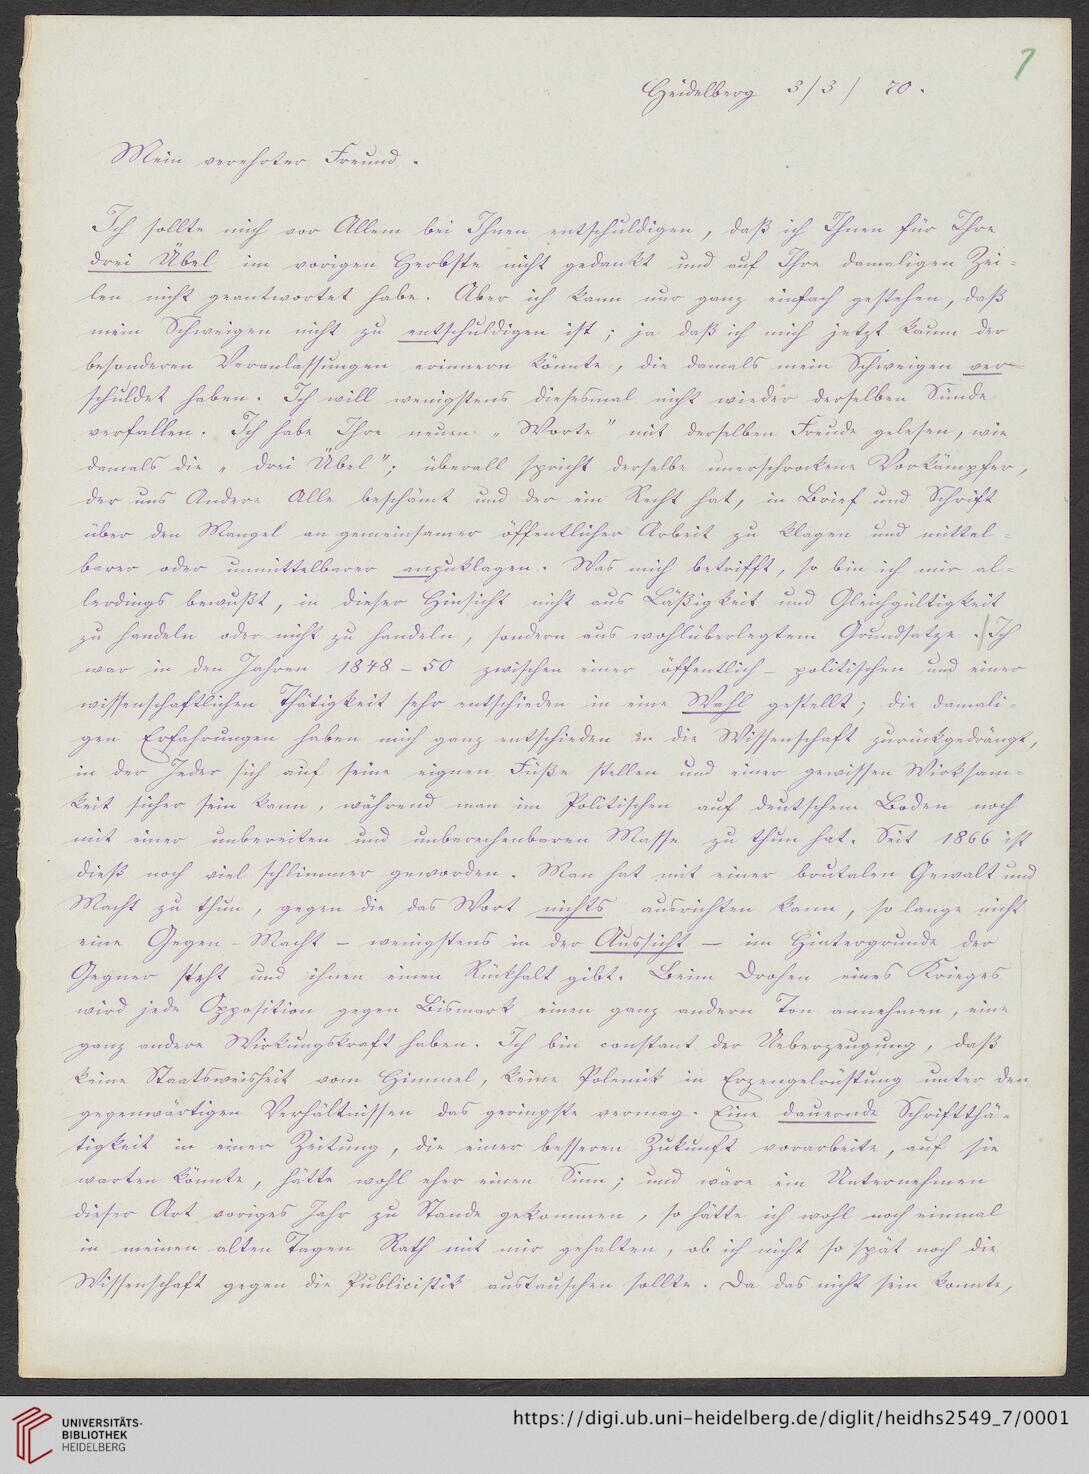 1
Heidelberg 3/3/ 70.
Mein verehrter Freund.
Ich sollte mich vor Allem bei Ihnen entschuldigen, daß ich Ihnen für Ihre
drei Übel im vorigen Herbste nicht gedankt und auf Ihre damaligen Zei-
len nicht geantwortet habe. Aber ich kann nur ganz einfach gestehen, daß
mein Schweigen nicht zu entschuldigen ist; ja daß ich mich jetzt kaum der
besonderen Veranlassungen erinnern könnte, die damals mein Schweigen ver-
schuldet haben. Ich will wenigstens diesesmal nicht wieder derselben Sünde
verfallen. Ich habe Ihre neuen „Worte" mit derselben Freude gelesen, wie
damals die „drei Übel"; überall spricht derselbe unerschrockene Vorkämpfer,
der uns Andere Alle beschämt und der ein Recht hat, in Brief und Schrift
über den Mangel an gemeinsamer öffentlicher Arbeit zu klagen und mittel-
barer oder unmittelbarer anzuklagen. Was mich betrifft, so bin ich mir al-
lerdings bewußt, in dieser Hinsicht nicht aus Läßigkeit und Gleichgültigkeit
zu handeln oder nicht zu handeln, sondern aus wohlüberlegtem Grundsatze. / Ich
war in den Jahren 1848-50 zwischen einer öffentlich-politischen und einer
wissenschaftlichen Thätigkeit sehr entschieden in eine Wahl gestellt; die damali-
gen Erfahrungen haben mich ganz entschieden in die Wissenschaft zurückgedrängt,
in der Jeder sich auf seine eignen Füße stellen und einer gewissen Wirksam-
keit sicher sein kann, während man im Politischen auf deutschem Boden noch
mit einer unbereiten und unberechenbaren Masse zu thun hat. Seit 1866 ist
dieß noch viel schlimmer geworden. Man hat mit einer brutalen Gewalt und
Macht zu thun, gegen die das Wort nichts ausrichten kann, so lange nicht
eine Gegen-Macht – wenigstens in der Aussicht – im Hintergrunde der
Gegner steht und ihnen einen Rückhalt gibt. Beim Drohen eines Krieges
wird jede Opposition gegen Bismark einen ganz andern Ton annehmen, eine
ganz andere Wirkungskraft haben. Ich bin constant der Ueberzeugung, daß
keine Staatsweisheit vom Himmel, keine Polemik in Erzengelrüstung unter den
gegenwärtigen Verhältnissen das geringste vermag. Eine dauernde Schriftthä-
tigkeit in einer Zeitung, die einer besseren Zukunft vorarbeite, auf sie
warten könnte, hätte wohl eher einen Sinn; und wäre ein Unternehmen
dieser Art voriges Jahr zu Stande gekommen, so hätte ich wohl noch einmal
in meinen alten Tagen Rath mit mir gehalten, ob ich nicht so spät noch die
Wissenschaft gegen die Publicistik austauschen sollte. Da das nicht sein konnte,
UNIVERSITÄTS-
BIBLIOTHEK
HEIDELBERG
https://digi.ub.uni-heidelberg.de/diglit/heidhs2549_7/0001